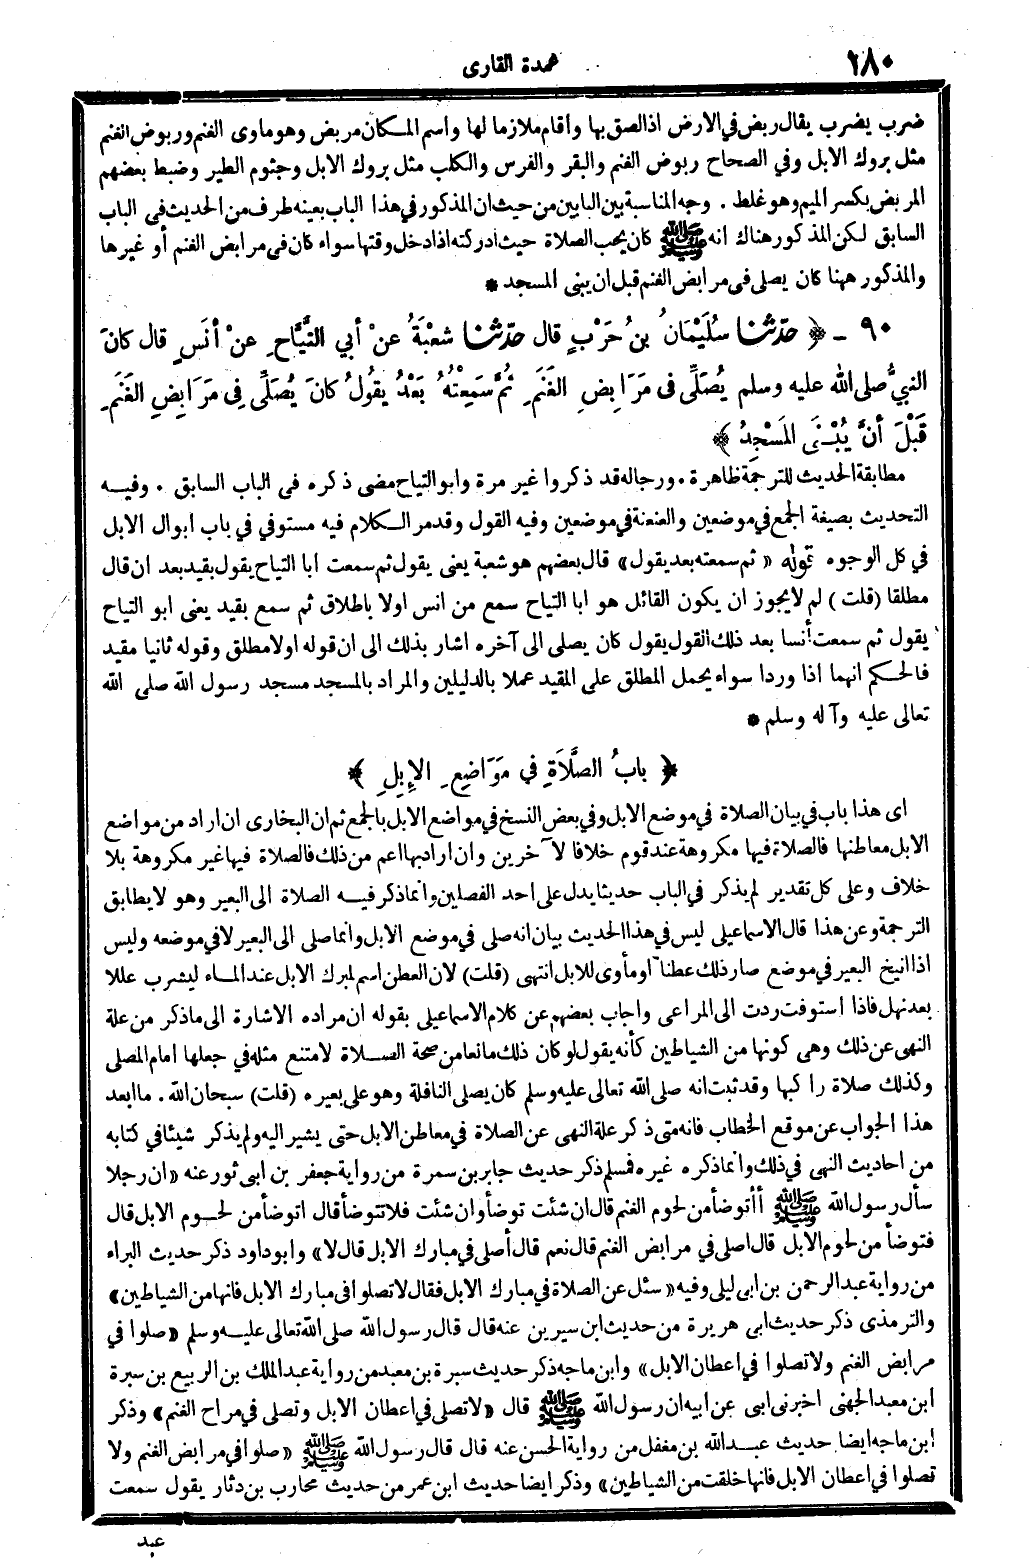 ١٨٠
عمدة القارى
ضرب يضرب يقال ربض في الارض اذا لصق بها وأقام ملازما لها واسم المكان مربض وهو ماوى الغنم وربوض الغنم
مثل بروك الابل وفي الصحاح ربوض الغنم والبقر والفرس والكلب مثل بروك الابل وجثوم الطير وضبط بعضهم
المربض بكسر الميم وهو غلط . وجه المناسبة بين البابين من حيث ان المذكور في هذا الباب بعينه طرف من الحديث في الباب
السابق لكن المذكور هناك انه ﷺ كان يحب الصلاة حيث ادركته اذا دخل وقتها سواء كان فى مرابض الغنم أو غيرها
والمذكور ههنا كان يصلى فى مرابض الغنم قبل ان يبنى المسجد *
٩٠ - ﴿ حدّثنا سُلَيْمَانُ بنُ حَرْبٍ قال حدّثنا شعْبَةُ عنْ أبي التَّيَّاحِ عنْ أنَسٍ قال كانَ
النبيُّ صلى الله عليه وسلم يُصَلِّى فى مَرَابِضِ الغَنَمِ ثُمَّ سَمِعْتُهُ بَعْدُ يقُولُ كانَ يُصَلِّى فِى مَرَابِضِ الغَنَمِ
قَبْلَ أنْ يُبْنَى المَسْجِدُ ﴾
مطابقة الحديث للترجمة ظاهرة . ورجاله قد ذكروا غير مرة وابو التياح مضى ذكره فى الباب السابق . وفيه
التحديث بصيغة الجمع في موضعين والعنعنة في موضعين وفيه القول وقد مر الكلام فيه مستوفي في باب ابوال الابل
في كل الوجوه قوله « ثم سمعته بعد يقول» قال بعضهم هو شعبة يعنى يقول ثم سمعت ابا التياح يقول بقيد بعد ان قال
مطلقا (قلت) لم لا يجوز ان يكون القائل هو ابا التياح سمع من انس اولا باطلاق ثم سمع بقيد يعنى ابو التياح
يقول ثم سمعت أنسا بعد ذلك القول يقول كان يصلى الى آخره اشار بذلك الى ان قوله اولا مطلق وقوله ثانيا مقيد
فالحكم انهما اذا وردا سواء يحمل المطلق على المقيد عملا بالدليلين والمراد بالمسجد مسجد رسول الله صلى الله
تعالى عليه وآله وسلم *
﴿ بابُ الصَّلاَةِ في مَوَاضِعِ الإِبِلِ ﴾
اى هذا باب في بيان الصلاة في موضع الابل وفي بعض النسخ في مواضع الابل بالجمع ثم ان البخارى ان اراد من مواضع
الابل معاطنها فالصلاة فيها مكروهة عند قوم خلافا لآخرين وان اراد بها اعم من ذلك فالصلاة فيها غير مكروهة بلا
خلاف وعلى كل تقدير لم يذكر في الباب حديثا يدل على احد الفصلين وانما ذكر فيه الصلاة الى البعير وهو لا يطابق
الترجمة وعن هذا قال الاسماعيلى ليس في هذا الحديث بيان انه صلى في موضع الابل وانما صلى الى البعير لا في موضعه وليس
اذا انيخ البعير في موضع صار ذلك عطنا او مأوى للابل انتهى (قلت) لان العطن اسم لمبرك الابل عند الماء ليشرب عللا
بعد نهل فاذا استوفت ردت الى المراعى واجاب بعضهم عن كلام الاسماعيلى بقوله ان مراده الاشارة الى ما ذكر من علة
النهى عن ذلك وهى كونها من الشياطين كأنه يقول لو كان ذلك مانعا من صحة الصلاة لامتنع مثله في جعلها امام المصلى
وكذلك صلاة راكبها وقد ثبت انه صلى الله تعالى عليه وسلم كان يصلى النافلة وهو على بعيره (قلت) سبحان الله . ما ابعد
هذا الجواب عن موقع الخطاب فانه متى ذكر علة النهى عن الصلاة في معاطن الابل حتى يشير اليه ولم يذكر شيئا في كتابه
من احاديث النهى في ذلك وانما ذكره غيره فمسلم ذكر حديث جابر بن سمرة من رواية جعفر بن ابى ثور عنه «ان رجلا
سأل رسول الله ﷺ أأتوضأ من لحوم الغنم قال ان شئت توضأ وان شئت فلا تتوضأ قال اتوضأ من لحوم الابل قال
فتوضأ من لحوم الابل قال اصلى في مرابض الغنم قال نعم قال أصلى في مبارك الابل قال لا» وابو داود ذكر حديث البراء
من رواية عبد الرحمن بن ابى ليلى وفيه «سئل عن الصلاة في مبارك الابل فقال لا تصلوا فى مبارك الابل فانها من الشياطين»
والترمذى ذكر حديث ابى هريرة من حديث ابن سيرين عنه قال قال رسول الله صلى الله تعالى عليه وسلم «صلوا في
مرابض الغنم ولا تصلوا في اعطان الابل» وابن ماجه ذكر حديث سبرة بن معبد من رواية عبد الملك بن الربيع بن سبرة
ابن معبد الجهنى اخبرنى ابى عن ابيه ان رسول الله ﷺ قال «لا تصلى في اعطان الابل وتصلى في مراح الغنم» وذكر
ابن ماجه ايضا حديث عبد الله بن مغفل من رواية الحسن عنه قال قال رسول الله ﷺ «صلوا في مرابض الغنم ولا
تصلوا في اعطان الابل فانها خلقت من الشياطين» وذكر ايضا حديث ابن عمر من حديث محارب بن دثار يقول سمعت
عبد